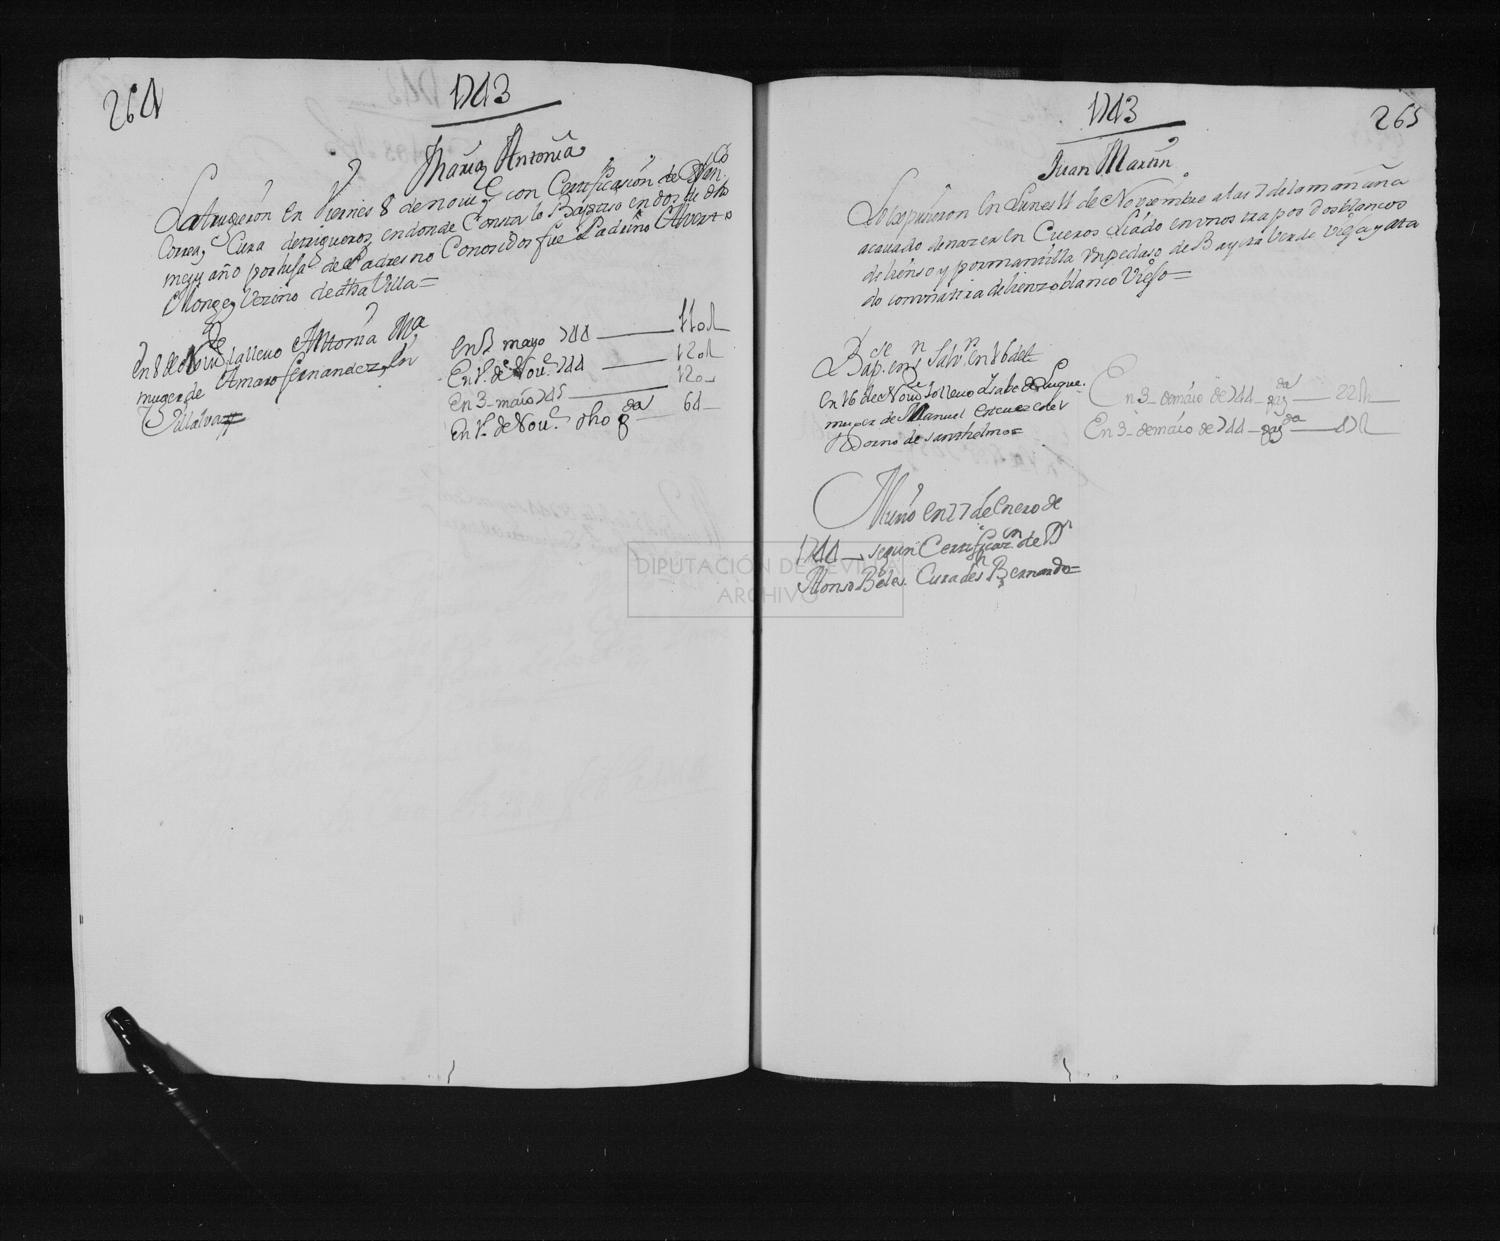 264
1743
Maria Antonia
La trugeron en Viernes 8 de nov.e con Certificasion de
Correa, Cura de trigueros, en donde Consta lo Baptiso en dos de dho
mes y año por hija de Padres no Conosidos fue Padrino Alverto
Monge, Vezino de dha Villa=
en 8 de Nov.e la llevo Antonia Ma
muger de Amaro fernandez, en
Villalva
en 3 mayo 744 — 110 r
En 1.º de Nov.e 744 — 120 r
En 3 maio 745 — 120
En 1.º de Nov.e dho — 64
1743
265
Juan Martin
Lo expusieron en Lunes 11 de Noviembre a las 7 de la mañana
acavado de nazer en Cueros liado en unos trapos dos blancos
de lienso y por mantilla un pedaso de Bayeta Verde vieja y ata
do con una tira de lienzo blanco Viejo=
Bap. en S.n Salv.r en 16 del
en 16 de Nov.e lo llevo Isabel de Luque
muger de Manuel
Horno de Santhelmo=
En 3 de máio de 744 — 22 r
En 3 de máio de 744 —
Murio en 27 de Enero de
1744 — segun Certificaz.n de D.n
Alonso Belez Cura de S.n Bernardo=
DIPUTACIÓN DE SEVILLA
ARCHIVO